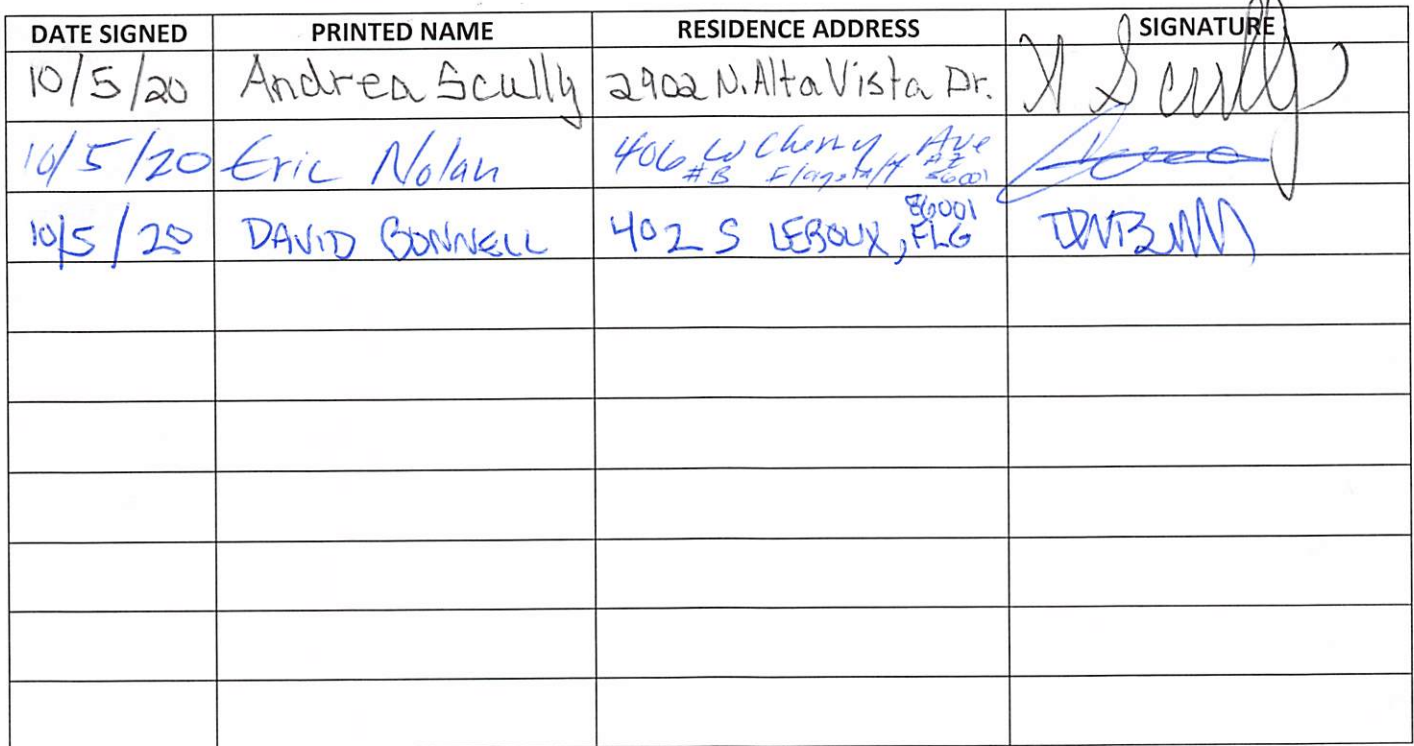 DATE SIGNED PRINTED NAME RESIDENCE ADDRESS SIGNATURE
10/5/20 Andrea Scully 2902 N. Alta Vista Dr. A Scully
10/5/20 Eric Nolan 406 W Cherry Ave
#B Flagstaff AZ
86001
86001
10/5/20 DAVID BONNELL 402 S LEROUX, FLG